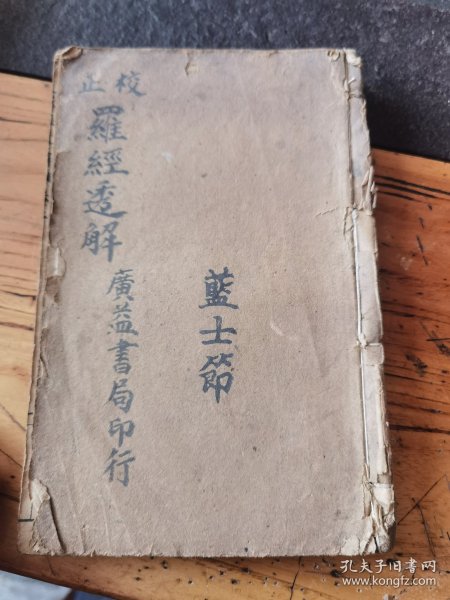 校正
羅經透解
廣益書局印行
藍士節
孔夫子旧书网
www.kongfz.com